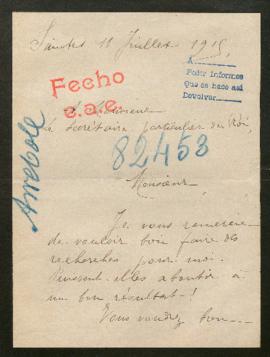 Saintes 18 Juillet 1915,
A
Pedir Informes
Que se hace así
Devolver
Fecho
e.a.e.
Monsieur
Le Secrétaire particulier du Roi,
82453
Arrebole
Monsieur
Je vous remercie
de vouloir bon faire des
recherches pour moi.
Puissent-elles aboutir à
un bon résultat!
Vous voudrez bon